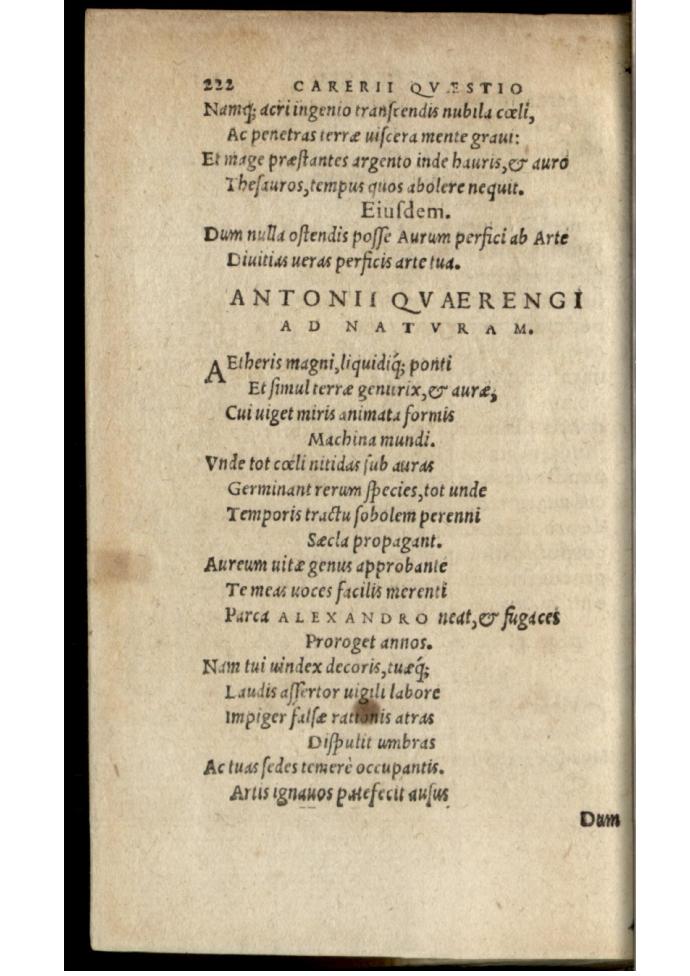 222 CARERII QVÆSTIO
Namq́; acri ingenio tranſcendis nubila cœli,
Ac penetras terræ uiſcera mente graui:
Et mage præſtantes argento inde hauris, & auro
Theſauros, tempus quos abolere nequit.
Eiuſdem.
Dum nulla oſtendis poſſe Aurum perfici ab Arte
Diuitias ueras perficis arte tua.
ANTONII QVAERENGI
AD NATVRAM.
AEtheris magni, liquidiq́; ponti
Et ſimul terræ genitrix, & auræ,
Cui uiget miris animata formis
Machina mundi.
Vnde tot cœli nitidas ſub auras
Germinant rerum ſpecies, tot unde
Temporis tractu ſobolem perenni
Sæcla propagant.
Aureum uitæ genus approbante
Te meas uoces facilis merenti
Parca ALEXANDRO neat, & fugaces
Proroget annos.
Nam tui uindex decoris, tuæq́;
Laudis aſſertor uigili labore
Impiger falſæ rationis atras
Diſpulit umbras
Ac tuas ſedes temerè occupantis.
Artis ignauos patefecit auſus
Dum